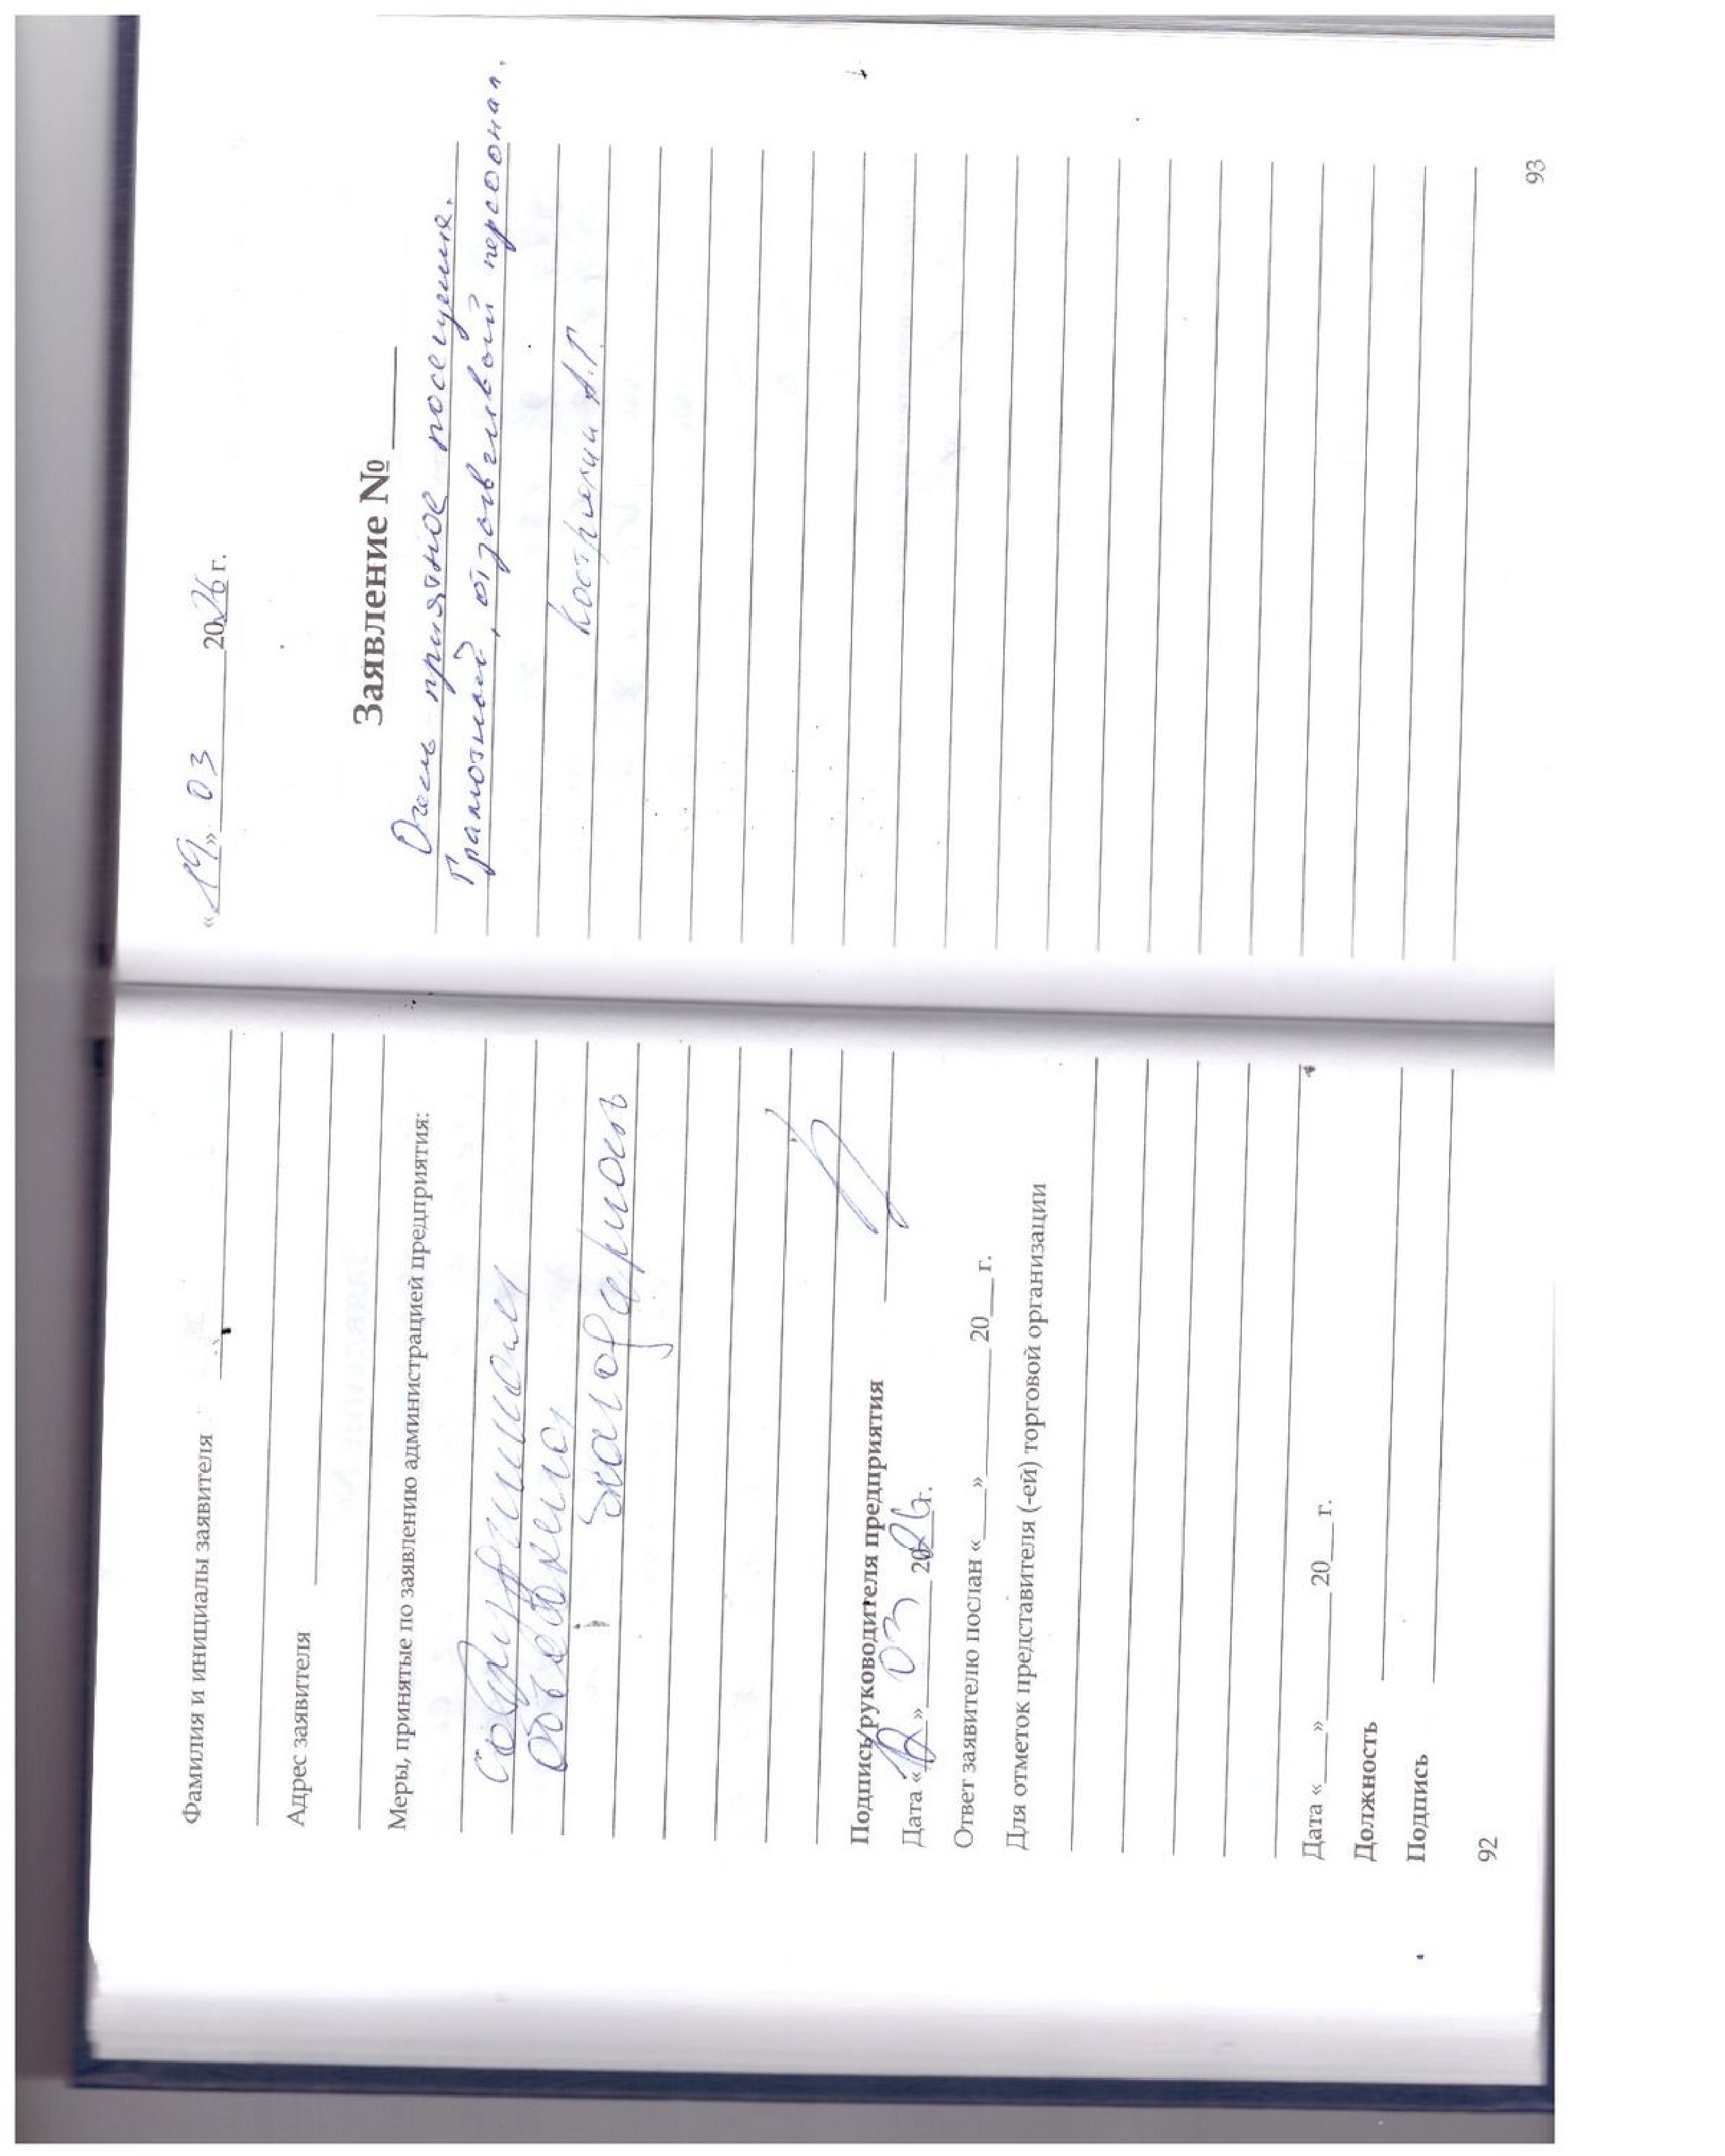 Фамилия и инициалы заявителя
Адрес заявителя
Меры, принятые по заявлению администрацией предприятия:
Сотрудникам
объявлена
благодарность
Подпись руководителя предприятия
Дата « » 03 2026г.
Ответ заявителю послан «___»________ 20___г.
Для отметок представителя (-ей) торговой организации
Дата «___»________ 20___г.
Должность
Подпись
92
«19» 03 2026г.
Заявление №
Очень приятное посещение.
Грамотный, отзывчивый персонал.
А.Г.
93